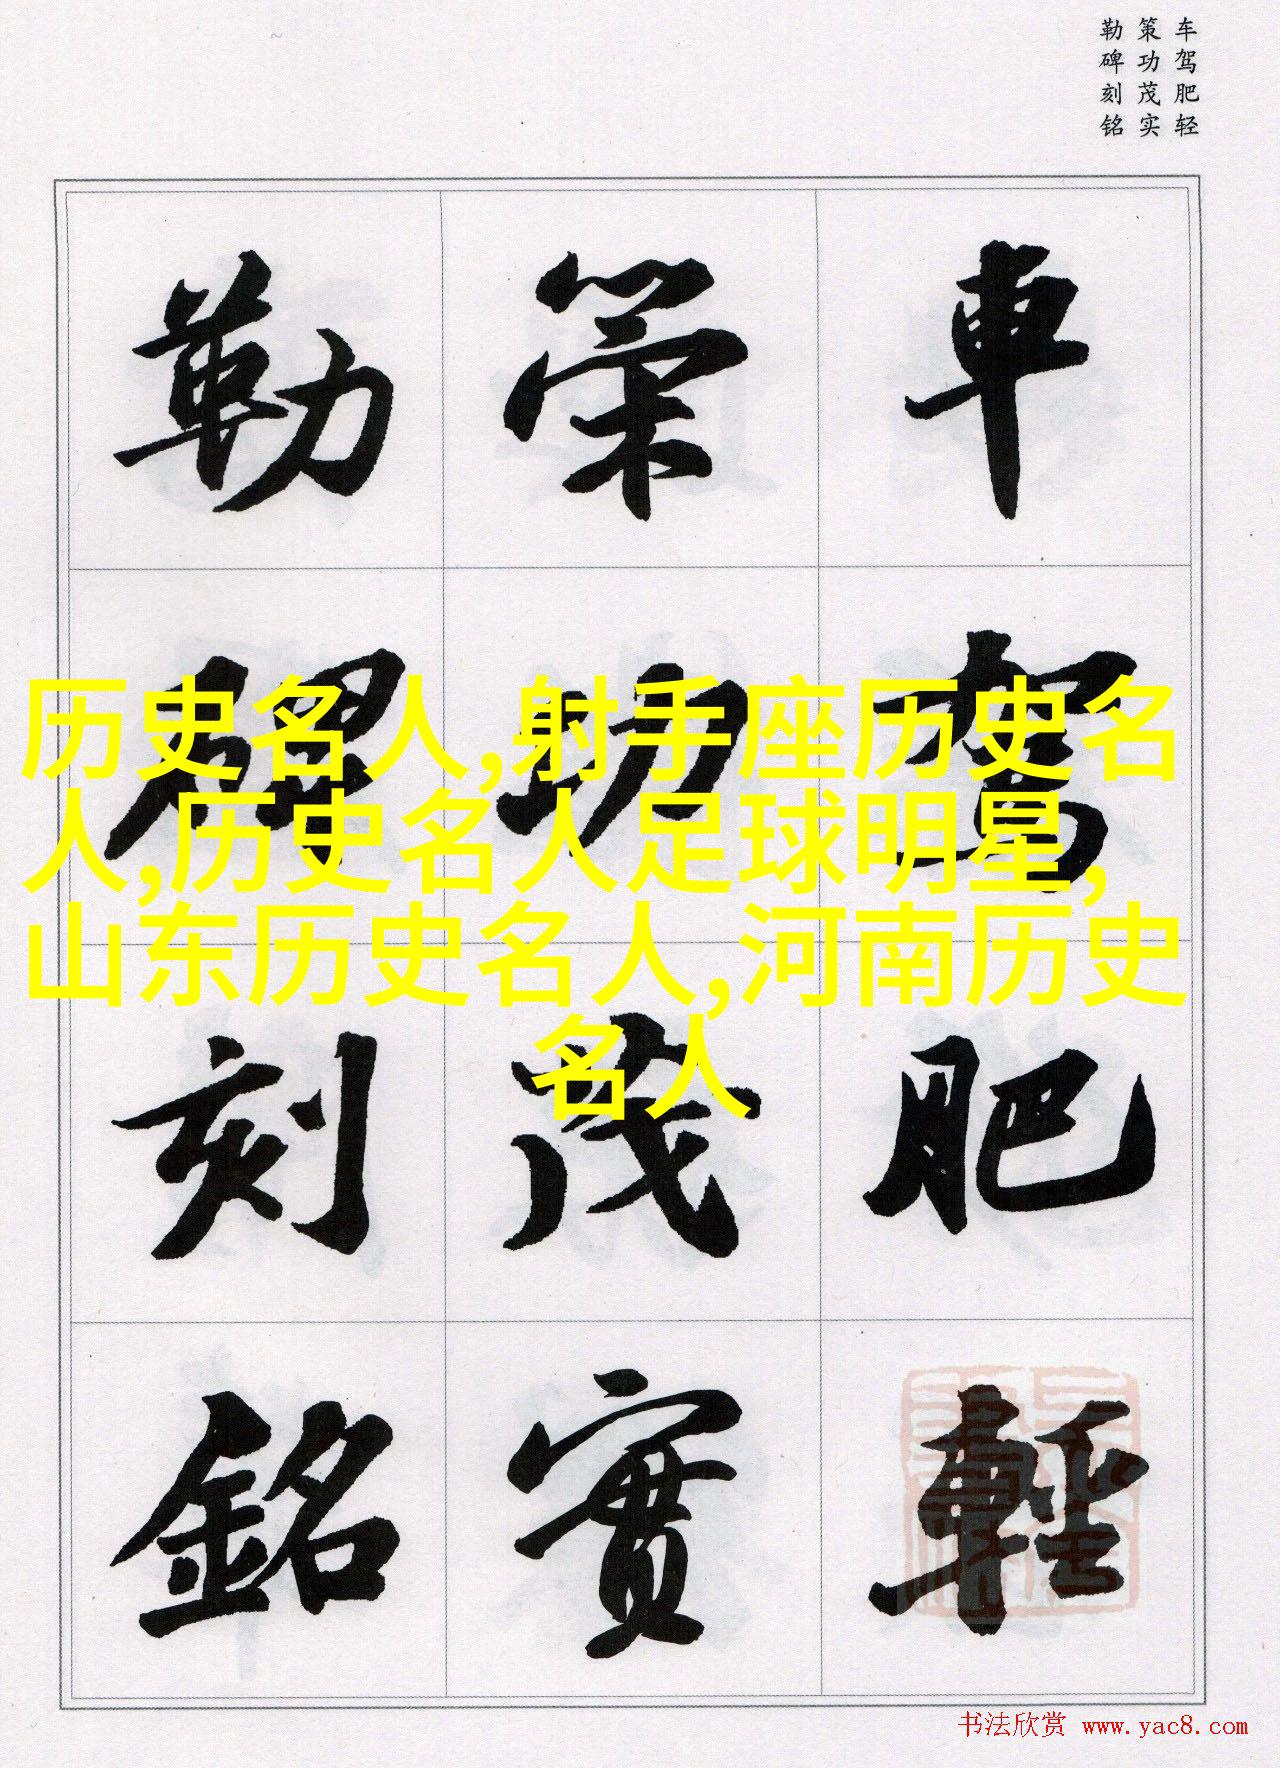 车驾肥轻
策功茂实
勒碑刻铭
車駕肥輕
策功茂實
勒碑刻銘
历史名人,射手座历史名
人,历史名人足球明星,
山东历史名人,河南历史
名人
书法欣赏 www.yac8.com